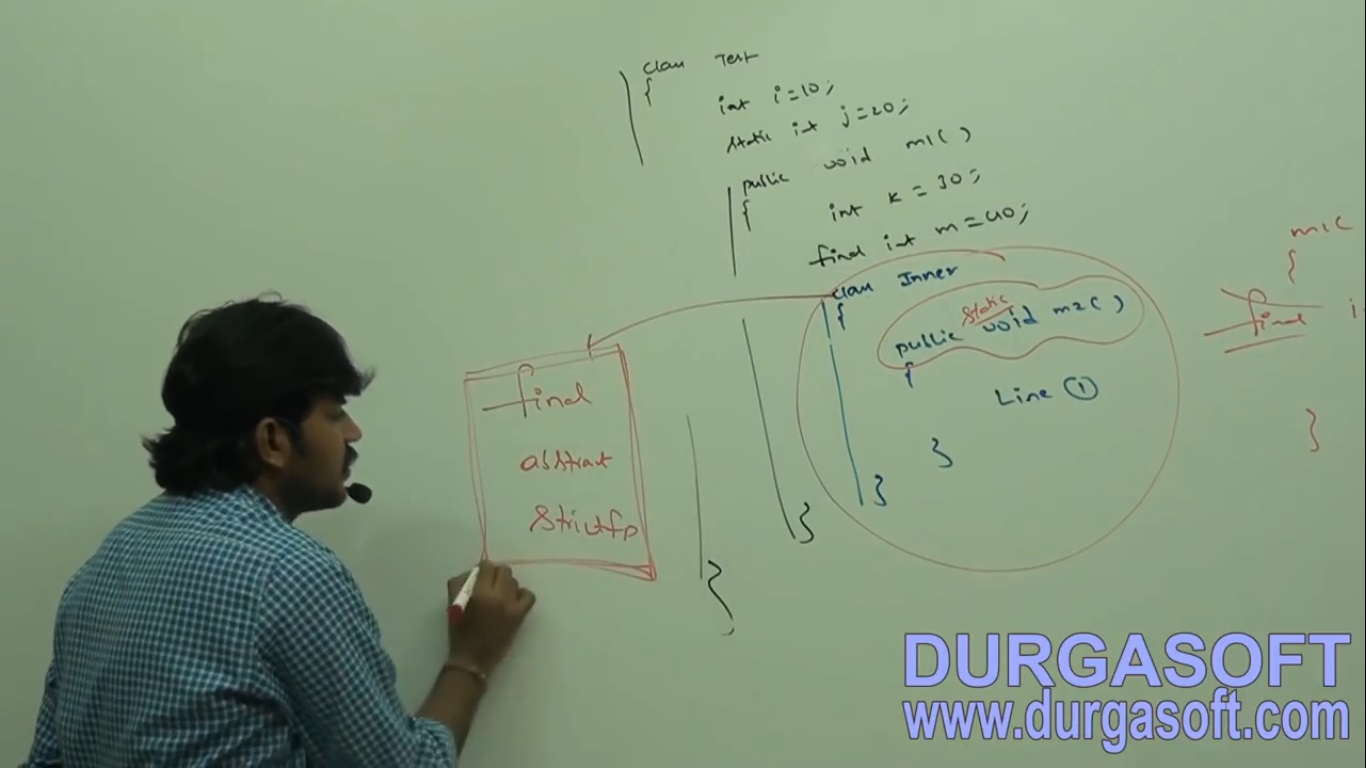 class Test
{
int i=10;
static int j=20;
public void m1( )
{
int k = 30;
final int m=40;
class Inner
{
public static void m2( )
{
Line ①
}
}
}
}
final
abstract
strictfp
m1(
{
final i
}
DURGASOFT
www.durgasoft.com